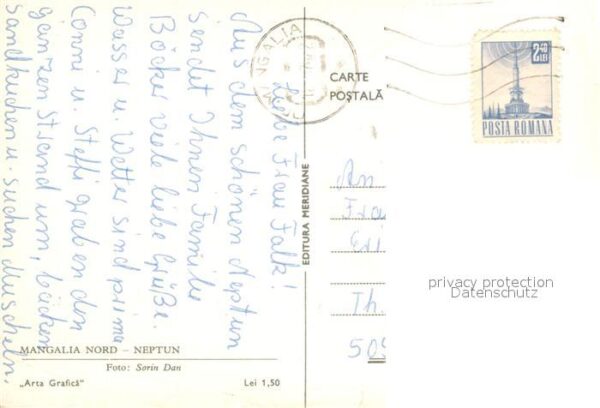 Liebe Frau Falk!
Aus dem schönen Neptun
sendet Ihnen Familie
Böcker viele liebe Grüße.
Wasser u. Wetter sind prima
Conni u. Steffi graben den
ganzen Strand um, backen
Sandkuchen u. suchen Muscheln.
MANGALIA NORD – NEPTUN
Foto: Sorin Dan
„Arta Grafică“
Lei 1,50
EDITURA MERIDIANE
MANGALIA
CARTE
POȘTALĂ
2,40
LEI
POSTA ROMANA
An
Fra
Eri
Th.
509
privacy protection
Datenschutz